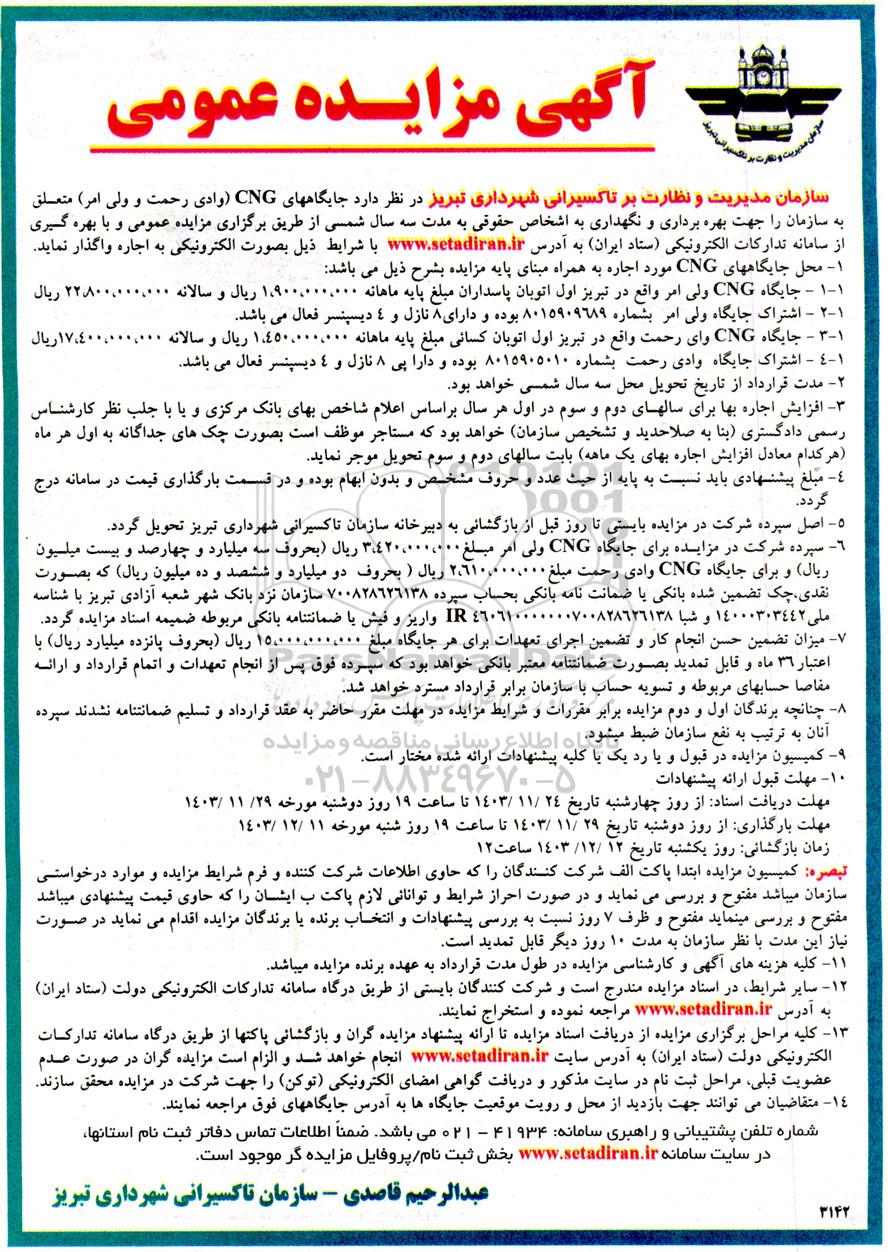 آگهی مزایده عمومی
سازمان مدیریت و نظارت بر تاکسیرانی تبریز
سازمان مدیریت و نظارت بر تاکسیرانی شهرداری تبریز در نظر دارد جایگاههای CNG (وادی رحمت و ولی امر) متعلق
به سازمان را جهت بهره برداری و نگهداری به اشخاص حقوقی به مدت سه سال شمسی از طریق برگزاری مزایده عمومی و با بهره گیری
از سامانه تدارکات الکترونیکی (ستاد ایران) به آدرس www.setadiran.ir با شرایط ذیل بصورت الکترونیکی به اجاره واگذار نماید.
۱- محل جایگاههای CNG مورد اجاره به همراه مبنای پایه مزایده بشرح ذیل می باشد:
۱-۱ - جایگاه CNG ولی امر واقع در تبریز اول اتوبان پاسداران مبلغ پایه ماهانه ۱،۹۰۰،۰۰۰،۰۰۰ ریال و سالانه ۲۲،۸۰۰،۰۰۰،۰۰۰ ریال
۱-۲ - اشتراک جایگاه ولی امر بشماره ۸۰۱۵۹۰۹۶۸۹ بوده و دارای۸ نازل و ٤ دیسپنسر فعال می باشد.
۱-۳ - جایگاه CNG وای رحمت واقع در تبریز اول اتوبان کسائی مبلغ پایه ماهانه ۱،٤۵۰،۰۰۰،۰۰۰ ریال و سالانه ۱۷،٤۰۰،۰۰۰،۰۰۰ریال
۱-٤ - اشتراک جایگاه وادی رحمت بشماره ۸۰۱۵۹۰۵۰۱۰ بوده و دارا پی ۸ نازل و ٤ دیسپنسر فعال می باشد.
۲- مدت قرارداد از تاریخ تحویل محل سه سال شمسی خواهد بود.
۳- افزایش اجاره بها برای سالهای دوم و سوم در اول هر سال براساس اعلام شاخص بهای بانک مرکزی و یا با جلب نظر کارشناس
رسمی دادگستری (بنا به صلاحدید و تشخیص سازمان) خواهد بود که مستاجر موظف است بصورت چک های جداگانه به اول هر ماه
(هرکدام معادل افزایش اجاره بهای یک ماهه) بابت سالهای دوم و سوم تحویل موجر نماید.
٤- مبلغ پیشنهادی باید نسبت به پایه از حیث عدد و حروف مشخص و بدون ابهام بوده و در قسمت بارگذاری قیمت در سامانه درج
گردد.
۵- اصل سپرده شرکت در مزایده بایستی تا روز قبل از بازگشائی به دبیرخانه سازمان تاکسیرانی شهرداری تبریز تحویل گردد.
۶- سپرده شرکت در مزایده برای جایگاه CNG ولی امر مبلغ۳،٤۲۰،۰۰۰،۰۰۰ ریال (بحروف سه میلیارد و چهارصد و بیست میلیون
ریال) و برای جایگاه CNG وادی رحمت مبلغ۲،۶۱۰،۰۰۰،۰۰۰ ریال ( بحروف دو میلیارد و ششصد و ده میلیون ریال) که بصورت
نقدی،چک تضمین شده بانکی یا ضمانت نامه بانکی بحساب سپرده ۷۰۰۸۲۸۶۲۶۱۳۸ سازمان نزد بانک شهر شعبه آزادی تبریز با شناسه
ملی۱٤۰۰۰۳۰۳٤٤۲ و شبا IR ٤۶۰۶۱۰۰۰۰۰۰۰۷۰۰۸۲۸۶۲۶۱۳۸ واریز و فیش یا ضمانتنامه بانکی مربوطه ضمیمه اسناد مزایده گردد.
۷- میزان تضمین حسن انجام کار و تضمین اجرای تعهدات برای هر جایگاه مبلغ ۱۵،۰۰۰،۰۰۰،۰۰۰ ریال (بحروف پانزده میلیارد ریال) با
اعتبار ۳۶ ماه و قابل تمدید بصورت ضمانتنامه معتبر بانکی خواهد بود که سپرده فوق پس از انجام تعهدات و اتمام قرارداد و ارائه
مفاصا حسابهای مربوطه و تسویه حساب با سازمان برابر قرارداد مسترد خواهد شد.
۸- چنانچه برندگان اول و دوم مزایده برابر مقررات و شرایط مزایده در مهلت مقرر حاضر به عقد قرارداد و تسلیم ضمانتنامه نشدند سپرده
آنان به ترتیب به نفع سازمان ضبط میشود.
۹- کمیسیون مزایده در قبول و یا رد یک یا کلیه پیشنهادات ارائه شده مختار است.
۱۰- مهلت قبول ارائه پیشنهادات
مهلت دریافت اسناد: از روز چهارشنبه تاریخ ۲٤ /۱۱ /۱٤۰۳ تا ساعت ۱۹ روز دوشنبه مورخه ۲۹/ ۱۱ /۱٤۰۳
مهلت بارگذاری: از روز دوشنبه تاریخ ۲۹ /۱۱ /۱٤۰۳ تا ساعت ۱۹ روز شنبه مورخه ۱۱ /۱۲ /۱٤۰۳
زمان بازگشائی: روز یکشنبه تاریخ ۱۲ /۱۲/ ۱٤۰۳ ساعت۱۲
تبصره: کمیسیون مزایده ابتدا پاکت الف شرکت کنندگان را که حاوی اطلاعات شرکت کننده و فرم شرایط مزایده و موارد درخواستی
سازمان میباشد مفتوح و بررسی می نماید و در صورت احراز شرایط و توانائی لازم پاکت ب ایشان را که حاوی قیمت پیشنهادی میباشد
مفتوح و بررسی مینماید مفتوح و ظرف ۷ روز نسبت به بررسی پیشنهادات و انتخاب برنده یا برندگان مزایده اقدام می نماید در صورت
نیاز این مدت با نظر سازمان به مدت ۱۰ روز دیگر قابل تمدید است.
۱۱- کلیه هزینه های آگهی و کارشناسی مزایده در طول مدت قرارداد به عهده برنده مزایده میباشد.
۱۲- سایر شرایط، در اسناد مزایده مندرج است و شرکت کنندگان بایستی از طریق درگاه سامانه تدارکات الکترونیکی دولت (ستاد ایران)
به آدرس www.setadiran.ir مراجعه نموده و استخراج نمایند.
۱۳- کلیه مراحل برگزاری مزایده از دریافت اسناد مزایده تا ارائه پیشنهاد مزایده گران و بازگشائی پاکتها از طریق درگاه سامانه تدارکات
الکترونیکی دولت (ستاد ایران) به آدرس سایت www.setadiran.ir انجام خواهد شد و الزام است مزایده گران در صورت عدم
عضویت قبلی، مراحل ثبت نام در سایت مذکور و دریافت گواهی امضای الکترونیکی (توکن) را جهت شرکت در مزایده محقق سازند.
۱٤- متقاضیان می توانند جهت بازدید از محل و رویت موقعیت جایگاه ها به آدرس جایگاههای فوق مراجعه نمایند.
شماره تلفن پشتیبانی و راهبری سامانه: ۴۱۹۳۴ - ۰۲۱ می باشد. ضمناً اطلاعات تماس دفاتر ثبت نام استانها،
در سایت سامانه www.setadiran.ir بخش ثبت نام/پروفایل مزایده گر موجود است.
عبدالرحیم قاصدی - سازمان تاکسیرانی شهرداری تبریز
۳۱۴۲
ParsNamadData
پایگاه اطلاع رسانی مناقصه و مزایده
۰۲۱-۸۸۳۴۹۶۷۰-۵